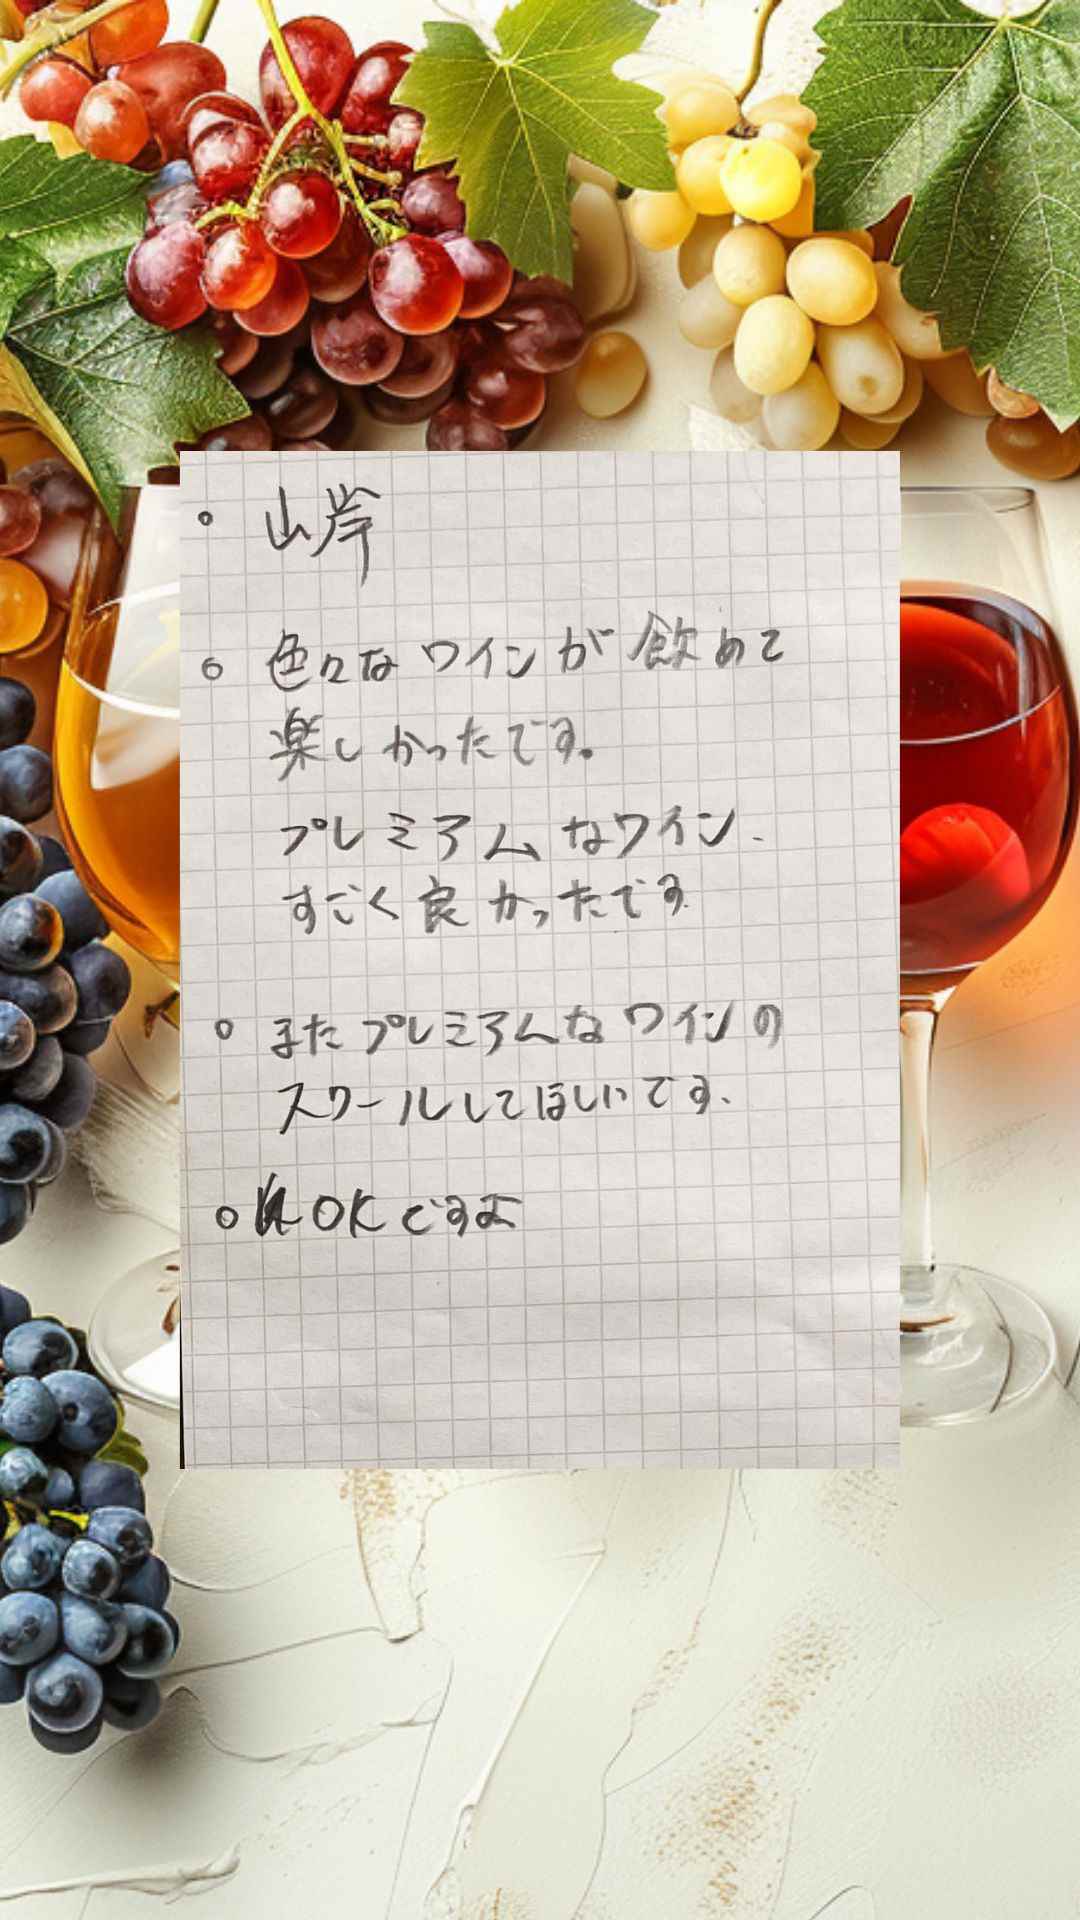 ○ 山岸
○ 色々なワインが飲めて
楽しかったです。
プレミアムなワイン、
すごく良かったです
○ またプレミアムなワインの
スクールしてほしいです、
○ OKですよ